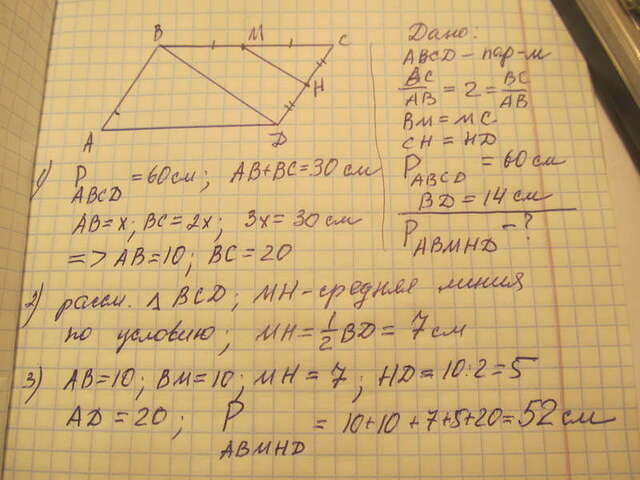 B M C
H
A D
Дано:
ABCD – пар-м
BC/AB = 2 = BC/AB
BM = MC
CH = HD
P ABCD = 60 см
BD = 14 см
P ABMHD – ?
1) P ABCD = 60 см; AB + BC = 30 см
AB = x; BC = 2x; 3x = 30 см
=> AB = 10; BC = 20
2) рассм. △ BCD; MH – средняя линия
по условию; MH = 1/2 BD = 7 см
3) AB = 10; BM = 10; MH = 7; HD = 10:2 = 5
AD = 20; P ABMHD = 10 + 10 + 7 + 5 + 20 = 52 см